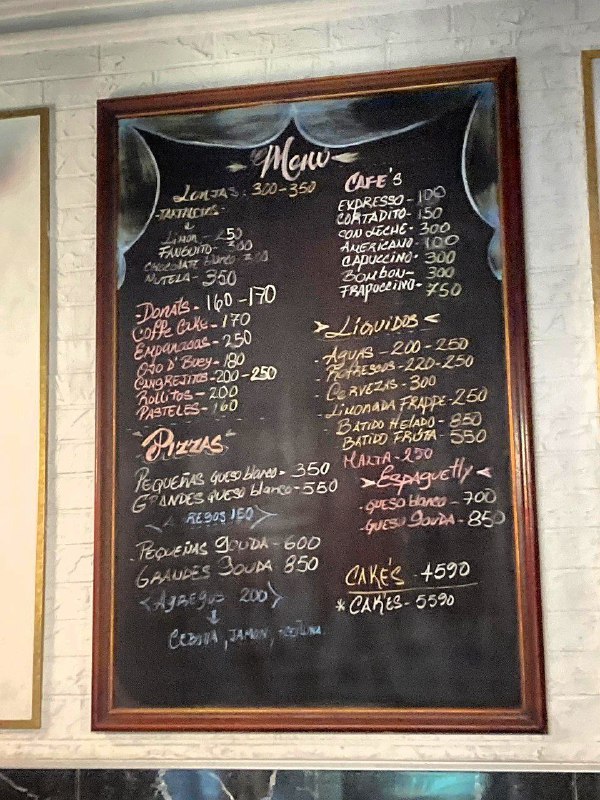 Menú
LONJAS: 300-350
TARTALETAS
FANGUITO - 300
NUTELA - 350
-DONATS- 160-170
COFFE CAKE- 170
EMPANADAS- 250
OJO D' BUEY- 180
CANGREJITOS-200-250
ROLLITOS - 200
PASTELES- 160
PIZZAS
PEQUEÑAS queso blanco - 350
GRANDES queso blanco-550
150
-PEQUEÑAS GOUDA-600
GRANDES GOUDA 850
<AGREGOS 200>
CEBOLLA, JAMON,
CAFE'S
EXPRESSO- 100
CORTADITO- 150
CON LECHE- 300
AMERICANO- 100
CAPUCCINO- 300
BOMBON- 300
FRAPUCCINO- 750
LIQUIDOS
-AGUAS - 200-250
-REFRESCOS -220-250
-CERVEZAS- 300
-LIMONADA FRAPPE-250
-BATIDO HELADO- 850
BATIDO FRUTA- 550
MALTA- 250
ESPAGUETTY
-QUESO blanco - 700
-QUESO GOUDA - 850
CAKE'S - 4590
*CAKES- 5590